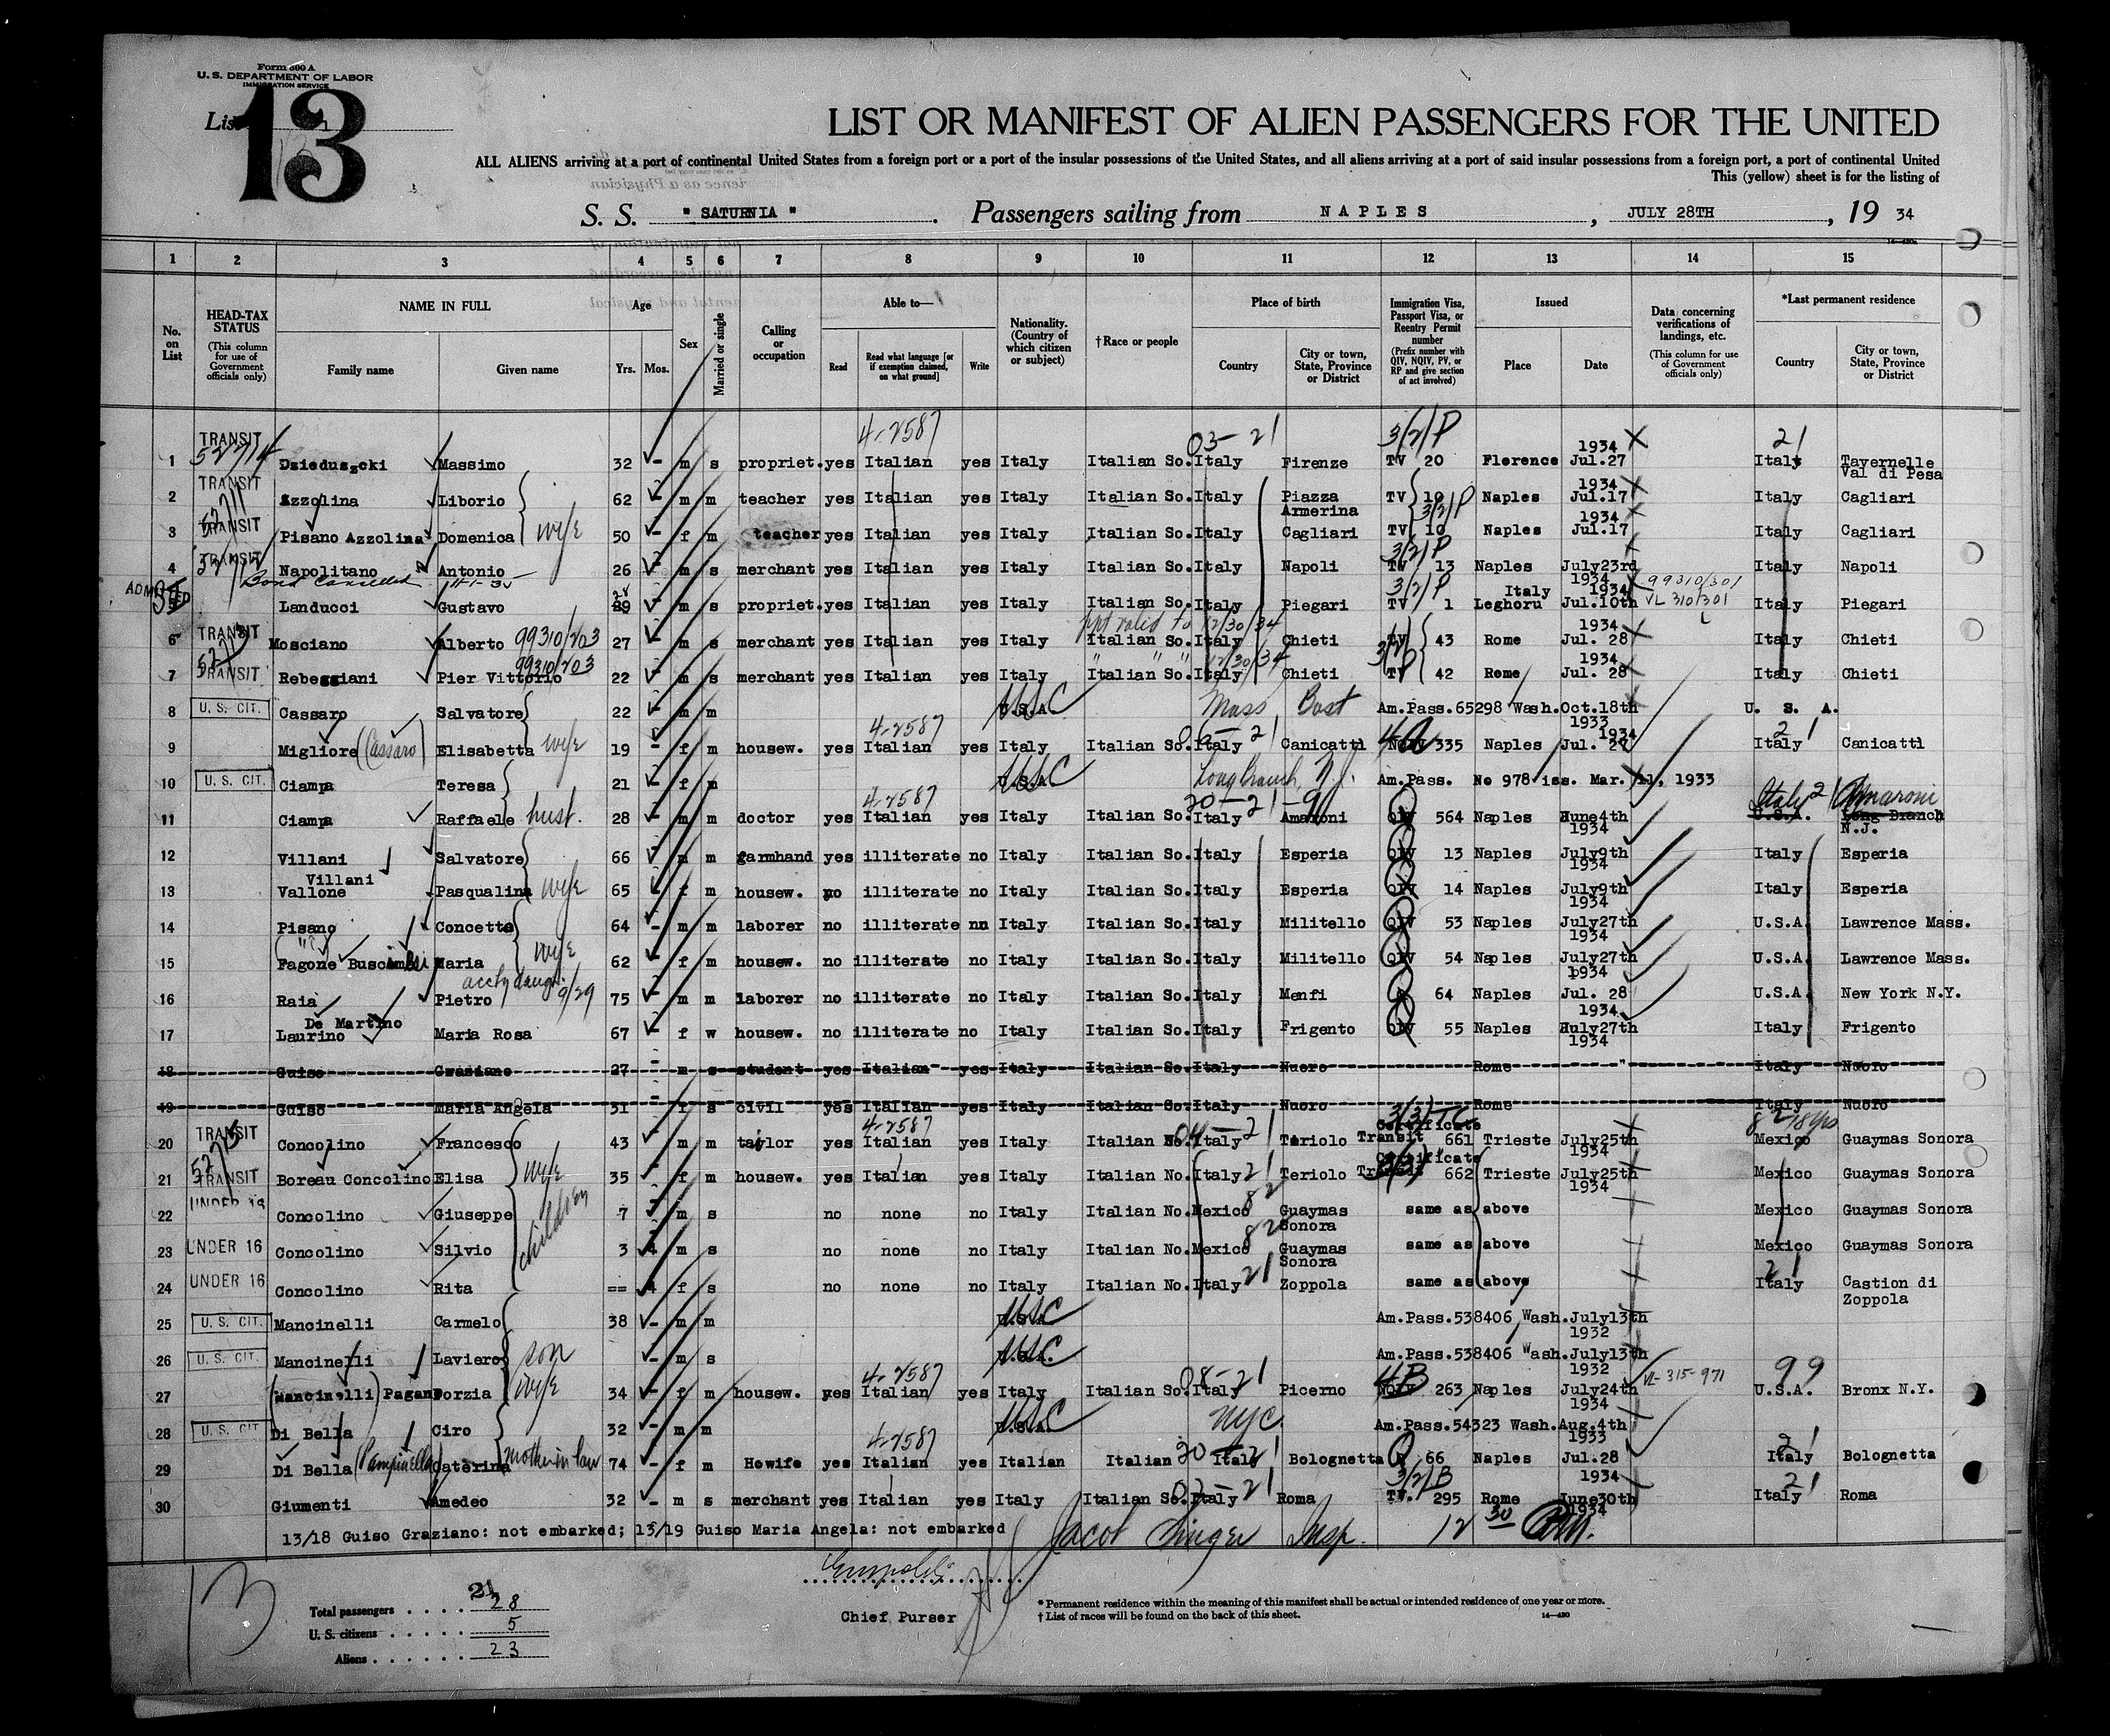 Form 500 A
U. S. DEPARTMENT OF LABOR
IMMIGRATION SERVICE
List 13
LIST OR MANIFEST OF ALIEN PASSENGERS FOR THE UNITED
ALL ALIENS arriving at a port of continental United States from a foreign port or a port of the insular possessions of the United States, and all aliens arriving at a port of said insular possessions from a foreign port, a port of continental United
This (yellow) sheet is for the listing of
S. S. " SATURNIA " . Passengers sailing from NAPLES , JULY 28TH , 19 34
1 2 3 4 5 6 7 8 9 10 11 12 13 14 15
No. on List
HEAD-TAX STATUS (This column for use of Government officials only)
NAME IN FULL
Family name Given name
Age
Yrs. Mos.
Sex
Married or single
Calling or occupation
Able to—
Read Read what language [or if exemption claimed, on what ground] Write
Nationality. (Country of which citizen or subject)
† Race or people
Place of birth
Country City or town, State, Province or District
Immigration Visa, Passport Visa, or Reentry Permit number (Prefix number with QIV, NQIV, PV, or RP and give section of act involved)
Issued
Place Date
Data concerning verifications of landings, etc. (This column for use of Government officials only)
*Last permanent residence
Country City or town, State, Province or District
4-2587 03-21 3/2/P 21
1 TRANSIT 52714 Dzieduszcki Massimo 32 - m s propriet. yes Italian yes Italy Italian So. Italy Firenze TV 20 Florence 1934 Jul.27 Italy Tavernelle Val di Pesa
2 TRANSIT Azzolina Liborio 62 - m m teacher yes Italian yes Italy Italian So. Italy Piazza Armerina TV 10 Naples 1934 Jul.17 Italy Cagliari
3 TRANSIT Pisano Azzolina Domenica wife 50 - f m teacher yes Italian yes Italy Italian So. Italy Cagliari TV 10 3/2/P Naples 1934 Jul.17 Italy Cagliari
4 TRANSIT Napolitano Antonio 26 m s merchant yes Italian yes Italy Italian So. Italy Napoli 3/2/P TV 13 Naples July23rd 1934 Italy Napoli
Bond Cancelled
5 ADMITTED Landucci Gustavo 29 28 - m s propriet. yes Italian yes Italy Italian So. Italy Piegari 3/2/P TV 1 Leghoru Italy 1934 Jul.10th 99310/301 VL 310/301 Italy Piegari
6 TRANSIT Mosciano Alberto 99310/203 27 - m s merchant yes Italian yes Italy ppt valid to 12/30/34 Italian So. Italy Chieti TV 43 Rome 1934 Jul. 28 Italy Chieti
7 TRANSIT Rebeggiani Pier Vittorio 99310/203 22 - m s merchant yes Italian yes Italy " " " 12/30/34 Italian So. Italy Chieti TV 42 Rome 1934 Jul. 28 Italy Chieti
8 U. S. CIT. Cassaro Salvatore 22 - m m U.S.A. USC Mass Bost Am.Pass.65298 Wash.Oct.18th 1933 U. S. A.
9 Migliore (Cassaro) Elisabetta wife 19 - f m housew. yes 4-2587 Italian yes Italy Italian So. Italy Canicatti 335 Naples 1934 Jul. 27 21 Italy Canicatti
10 U. S. CIT. Ciampa Teresa 21 - f m U.S.A. USC Long Branch, N.J. Am.Pass. No 978 iss. Mar. 1933
11 Ciampa Raffaele hust. 28 - m m doctor yes 4-2587 Italian yes Italy Italian So. 20-21-9 Italy Amaroni QIV 564 Naples June4th 1934 U.S.A. Italy 21 Long Branch N.J. Amaroni
12 Villani Salvatore 66 m m farmhand yes illiterate no Italy Italian So. Italy Esperia QIV 13 Naples July9th 1934 Italy Esperia
13 Villani Vallone Pasqualina wife 65 - f m housew. no illiterate no Italy Italian So. Italy Esperia QIV 14 Naples July9th 1934 Italy Esperia
14 Pisano Concetto 64 - m m laborer no illiterate nn Italy Italian So. Italy Militello QIV 53 Naples July27th 1934 U.S.A. Lawrence Mass.
15 Fagone Buscemi Maria wife 62 - f m housew. no illiterate no Italy Italian So. Italy Militello QIV 54 Naples July27th 1934 U.S.A. Lawrence Mass.
16 Raia Pietro 9/29 75 - m m laborer no illiterate no Italy Italian So. Italy Menfi 64 Naples Jul. 28 1934 U.S.A. New York N.Y.
17 De Martino Laurino Maria Rosa 67 - f w housew. no illiterate no Italy Italian So. Italy Frigento QIV 55 Naples July27th 1934 Italy Frigento
18 Guiso Graziano 27 - m s student yes Italian yes Italy Italian So. Italy Nuoro Rome " Italy Nuoro
19 Guiso Maria Angela 31 f s civil yes Italian yes Italy Italian So. Italy Nuoro Rome Italy Nuoro
20 TRANSIT 52715 Concolino Francesco 43 - m m taylor yes 4-2587 Italian yes Italy Italian No. 04-21 Italy Teriolo 3/3/TC Certificate Transit 661 Trieste July25th 1934 Mexico Guaymas Sonora
21 TRANSIT Boreau Concolino Elisa wife 35 - f m housew. yes Italian yes Italy Italian No. Italy 21 Teriolo Certificate Transit 662 Trieste July25th 1934 Mexico Guaymas Sonora
22 UNDER 16 Concolino Giuseppe children 7 - m s no none no Italy Italian No. Mexico 82 Guaymas Sonora same as above Mexico Guaymas Sonora
23 UNDER 16 Concolino Silvio 3 4 m s no none no Italy Italian No. Mexico 82 Guaymas Sonora same as above Mexico Guaymas Sonora
24 UNDER 16 Concolino Rita == 4 f s no none no Italy Italian No. Italy 21 Zoppola same as above 21 Italy Castion di Zoppola
25 U. S. CIT. Mancinelli Carmelo 38 - m m U.S.A. USC Am.Pass.538406 Wash.July13th 1932
26 U. S. CIT. Mancinelli Laviero son - m s USC Am.Pass.538406 Wash.July13th 1932
27 (Mancinelli) Pagano Porzia wife 34 - f m housew. yes 4-2587 Italian yes Italy Italian So. 08-21 Italy Picerno 4B 263 Naples July24th 1934 VL-315-971 99 U.S.A. Bronx N.Y.
28 U. S. CIT Di Bella Ciro 32 - m m U.S.A. USC NYC Am.Pass.54323 Wash.Aug.4th 1933
29 Di Bella (Pampinella) Caterina mother in law 74 - f m Howife yes 4-2587 Italian yes Italian Italian 20-21 Italy Bolognetta Q 66 Naples Jul.28 1934 21 Italy Bolognetta
30 Giumenti Amedeo 32 - m s merchant yes Italian yes Italy Italian So. Italy Roma 3/2/B TV. 295 Rome June30th 1934 21 Italy Roma
13/18 Guiso Graziano: not embarked; 13/19 Guiso Maria Angela: not embarked
Jacob Singer Insp. 12 30 PM.
13
Chief Purser
Total passengers . . . . 28
U. S. citizens . . . . . 5
Aliens . . . . . . 23
* Permanent residence within the meaning of this manifest shall be actual or intended residence of one year or more.
† List of races will be found on the back of this sheet.
14—420